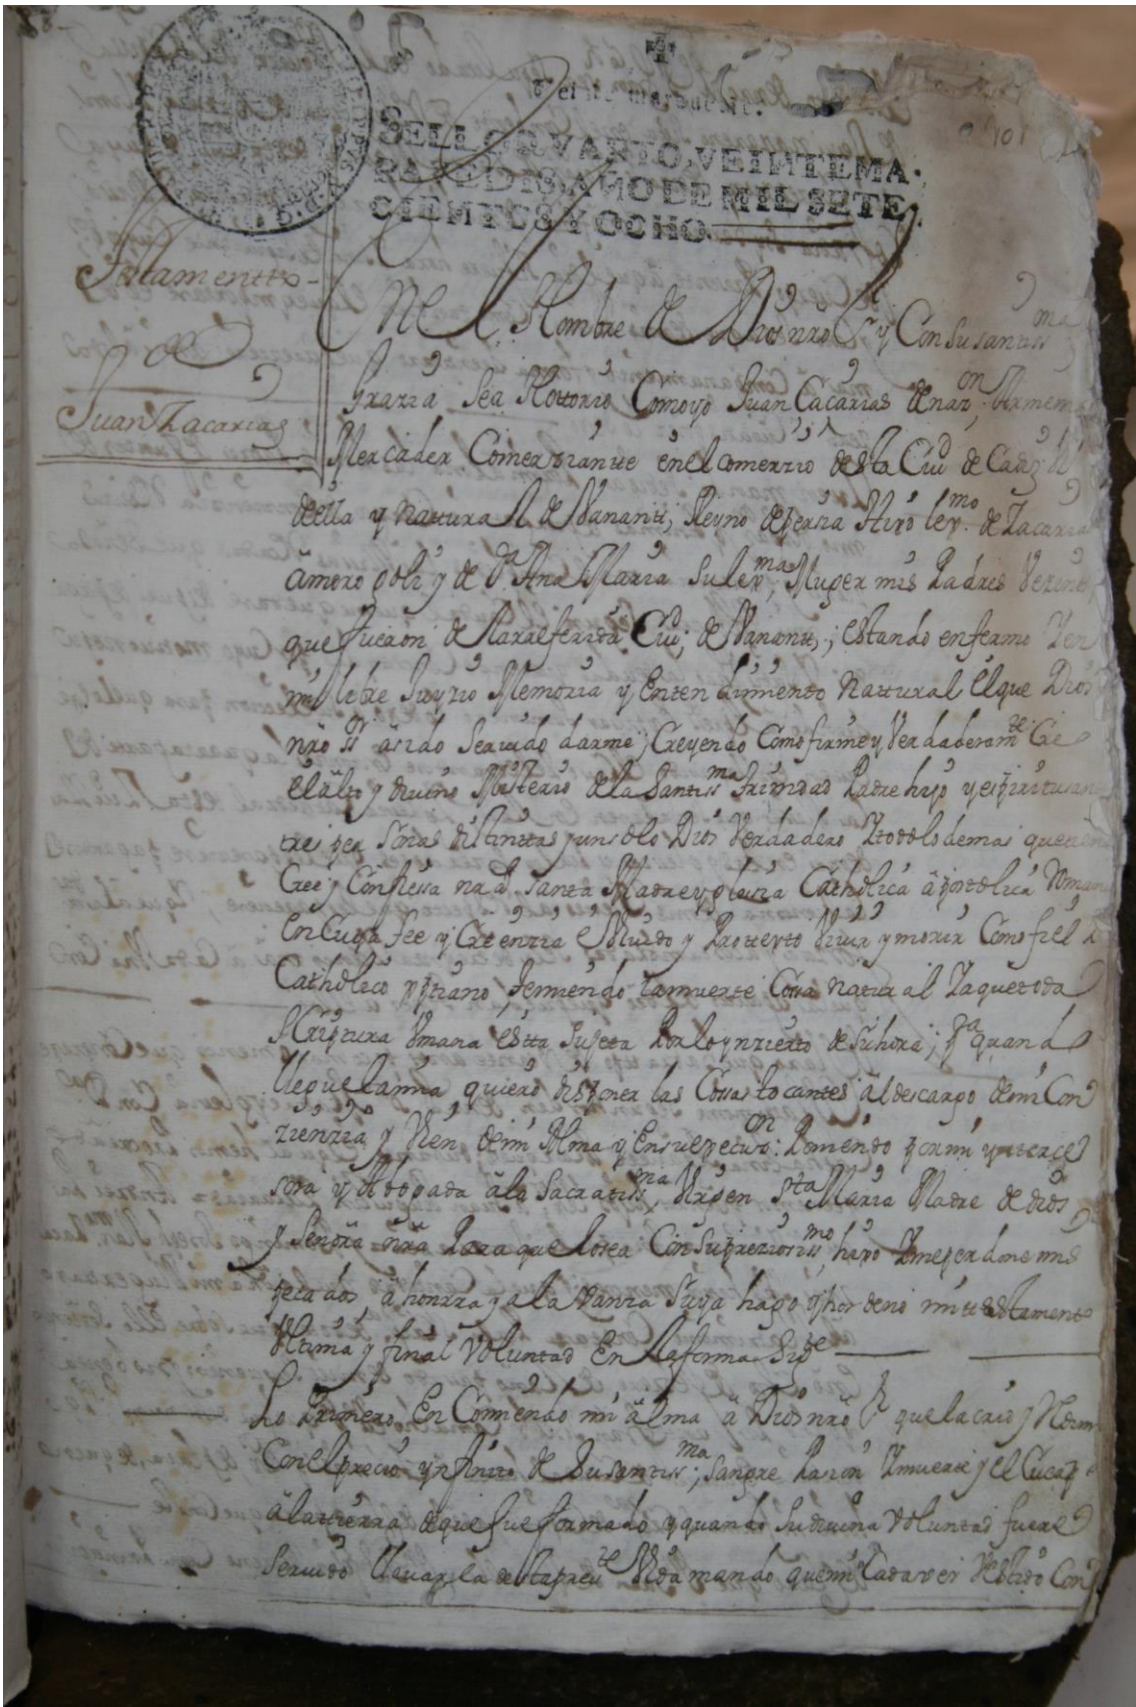 SELLO QVARTO, VEINTE MA-
RAVEDIS, AÑO DE MIL SETE
CIENTOS Y OCHO.
Testamentto
de
Juan Zacarias
En El Nombre de Dios nro Sr y Con su santissma
Grazia Sea Nottorio Como yo Juan Cacarias de nazon Armenia
Mercader Comerziantte en el comerzio de sta Ciud de Cadiz
de ella y nattural de Vananti, Reyno de persia Hixo lexmo de Zacarias
y de Da Ana Maria su lexma Muger mis Padres Vezinos
que fueron de la rreferida Ciud de Vananti; estando enfermo Y en
mi libre Juyzio Memoria y Entendimiento Nattural el que Dios
nro Sr a sido seruido darme; Creyendo Como firme y Verdaderamte Creo
el alto y diuino Misterio de la Santissma trinidad Padre hijo y espiritu santo
tres personas distinttas y un solo Dios Verdadero Y todo lo demas que tiene
Cree y Confiessa nra santa Madre yglesia Catholica apostolica Romana
En Cuya fee y Creenzia e Viuido y Protexto Viuir y morir Como fiel
Catholico xptiano temiendo la muerte Cossa natural Y a que toda
Criatura Vmana esta sujeta Por lo ynzierto de su hora; pa quando
llegue la mia quiero disponer las Cossas tocantes al descargo de mi Con
zienzia y Vien de mi Alma y En su execuzon: Poniendo por mi ynterce
sora y Abogada a la Sacratissma Virgen Sta Maria Madre de dios
y Señora nra Para que lo sea Con su preziosissmo hixo Y me perdone mis
pecados, a honrra y alabanza Suya hago y hordeno mi testamento
Vltima y final Voluntad En la forma Sigte
Lo Primero En Comiendo mi alma a Dios nro Sr que la crio y Redimio
Con el precio ynfinito de su santissma sangre Pasion Y muerte y el Cuerpo
a la tierra de que fue formado y quando su diuina Voluntad fuere
Seruido lleuarla de sta presste Vida mando que mi Cadauer Vestido Con